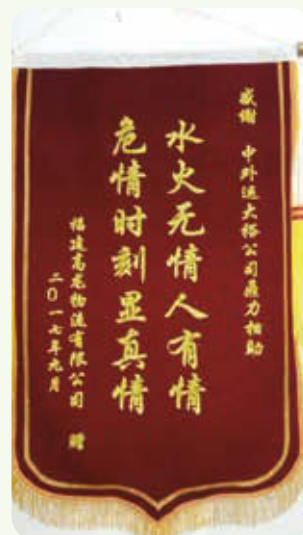 感谢 中外运大裕公司鼎力相助
水火无情人有情
危情时刻显真情
福建高龙物流有限公司 赠
二〇一七年九月